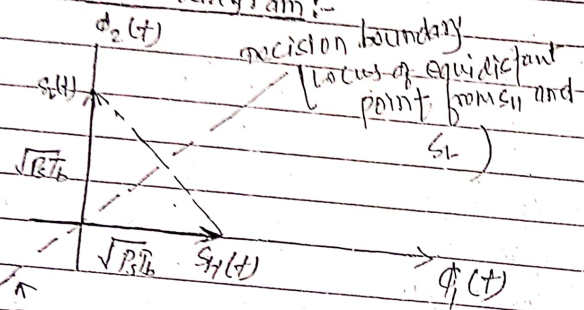 ɸ₂(t)
Decision boundary
(Locus of equidistant
point from SH and
SL)
SL(t)
√PsTb
√PsTb
SH(t)
ɸ₁(t)